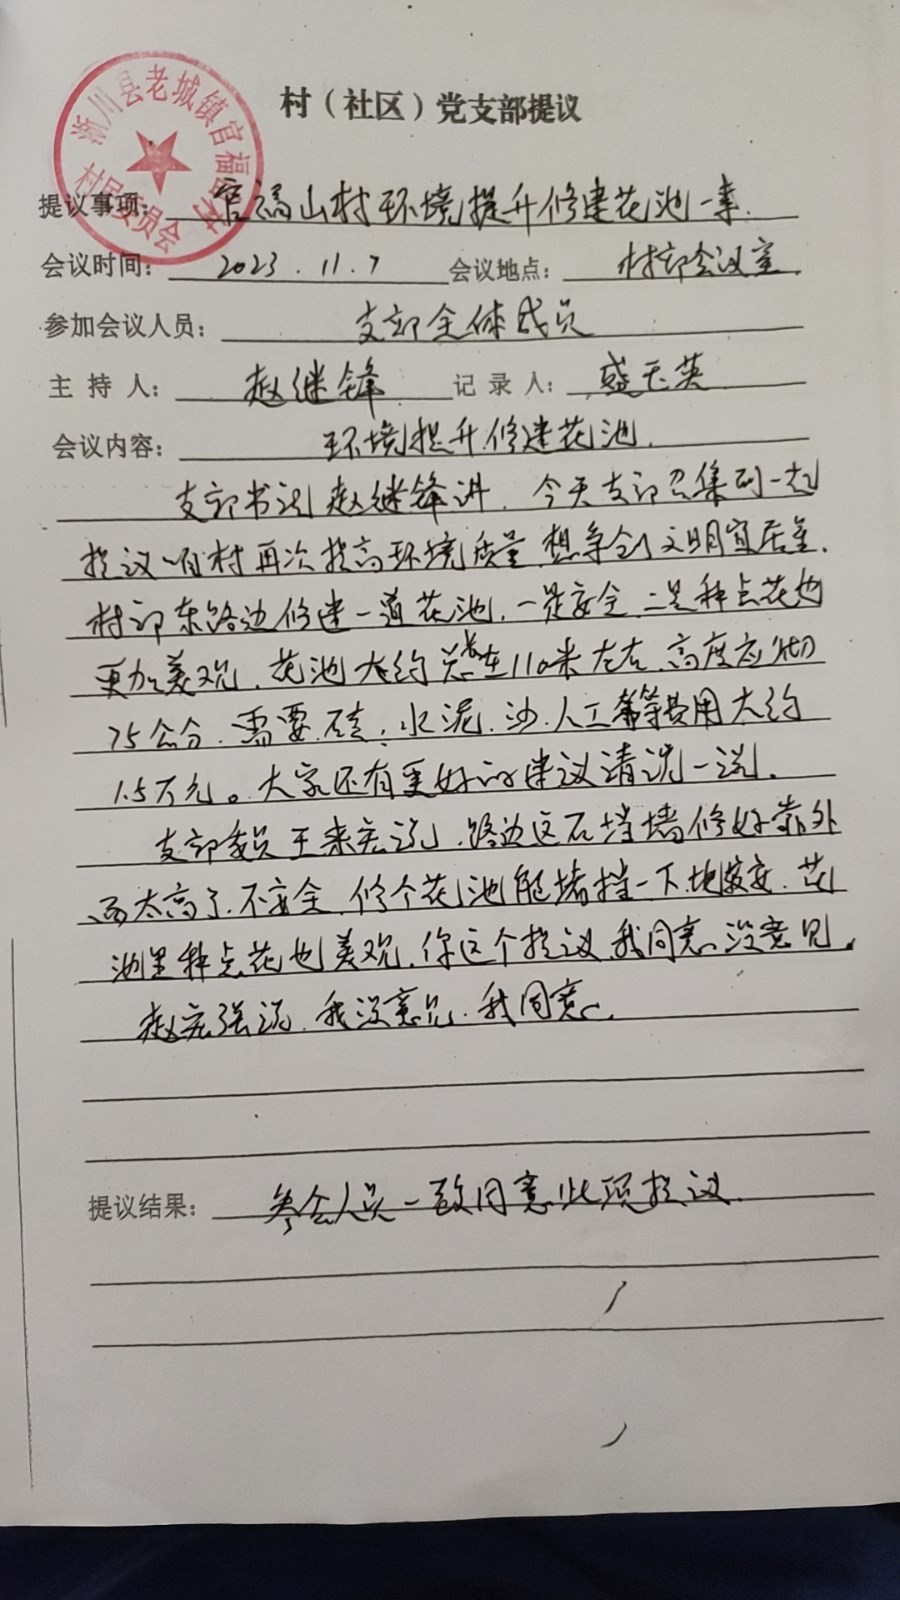 村（社区）党支部提议
淅川县老城镇官福山村
村民委员会
提议事项: 官福山村环境提升修建花池一事.
会议时间: 2023.11.7 会议地点: 村部会议室.
参加会议人员: 支部全体成员
主持人: 赵继锋 记录人: 盛玉英
会议内容: 环境提升修建花池.
支部书记赵继锋讲. 今天支部召集到一起
提议 村再次提高环境质量 想争创文明宜居
村部东路边修建一道花池. 一是安全 二是种点花也
更加美观. 花池大约总长在110米左右 高度应砌
75公分. 需要 砖: 水泥. 沙. 人工等等费用大约
1.5万元。大家还有更好的建议请说一说.
支部委员王来宏说 路边这石挡墙修好靠外
面太高了. 不安全. 修个花池能堵挡一下 也 安. 花
池里种点花也美观. 你这个提议我同意 没意见.
赵宏强说. 我没意见. 我同意.
提议结果: 参会人员一致同意此项提议.